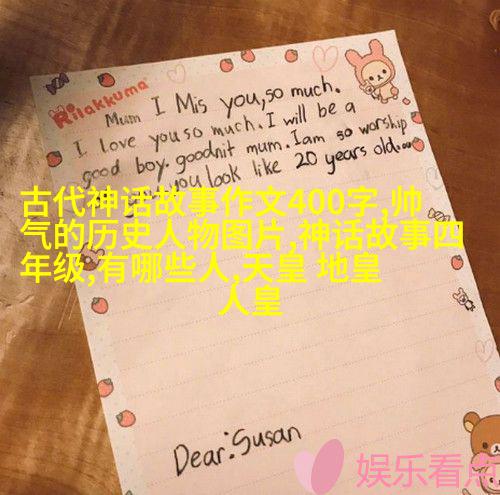 Rilakkuma
Mum I Mis you,so much.
I love you so much. I will be a
good boy. goodnit mum. I am so worship
you look like 20 years old.
古代神话故事作文400字,帅
气的历史人物图片,神话故事四
年级,有哪些人,天皇 地皇
人皇
Dear:Susan
娱乐看点